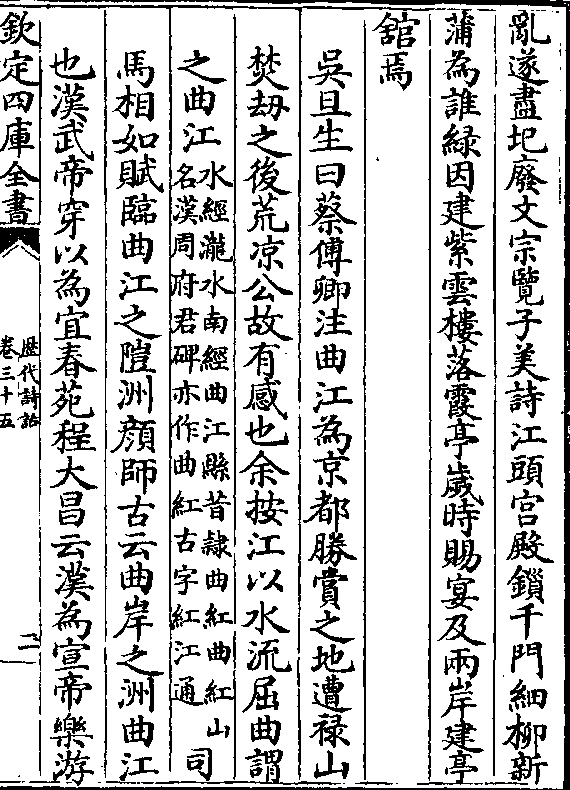 亂遂盡圯廢文宗覽子美詩江頭宫殿鎖千門細柳新
蒲為誰緑因建紫雲樓落霞亭歲時賜宴及兩岸建亭
舘焉
吳旦生曰蔡傅卿注曲江為京都勝賞之地遭禄山
焚刼之後荒凉公故有感也余按江以水流屈曲謂
之曲江水經瀧水南經曲江縣昔隷曲紅曲紅山
名漢周府君碑亦作曲紅古字紅江通司
馬相如賦臨曲江之隑洲顔師古云曲岸之洲曲江
也漢武帝穿以為宜春苑程大昌云漢為宣帝樂游
欽定四庫全書
歴代詩話
卷三十五
二